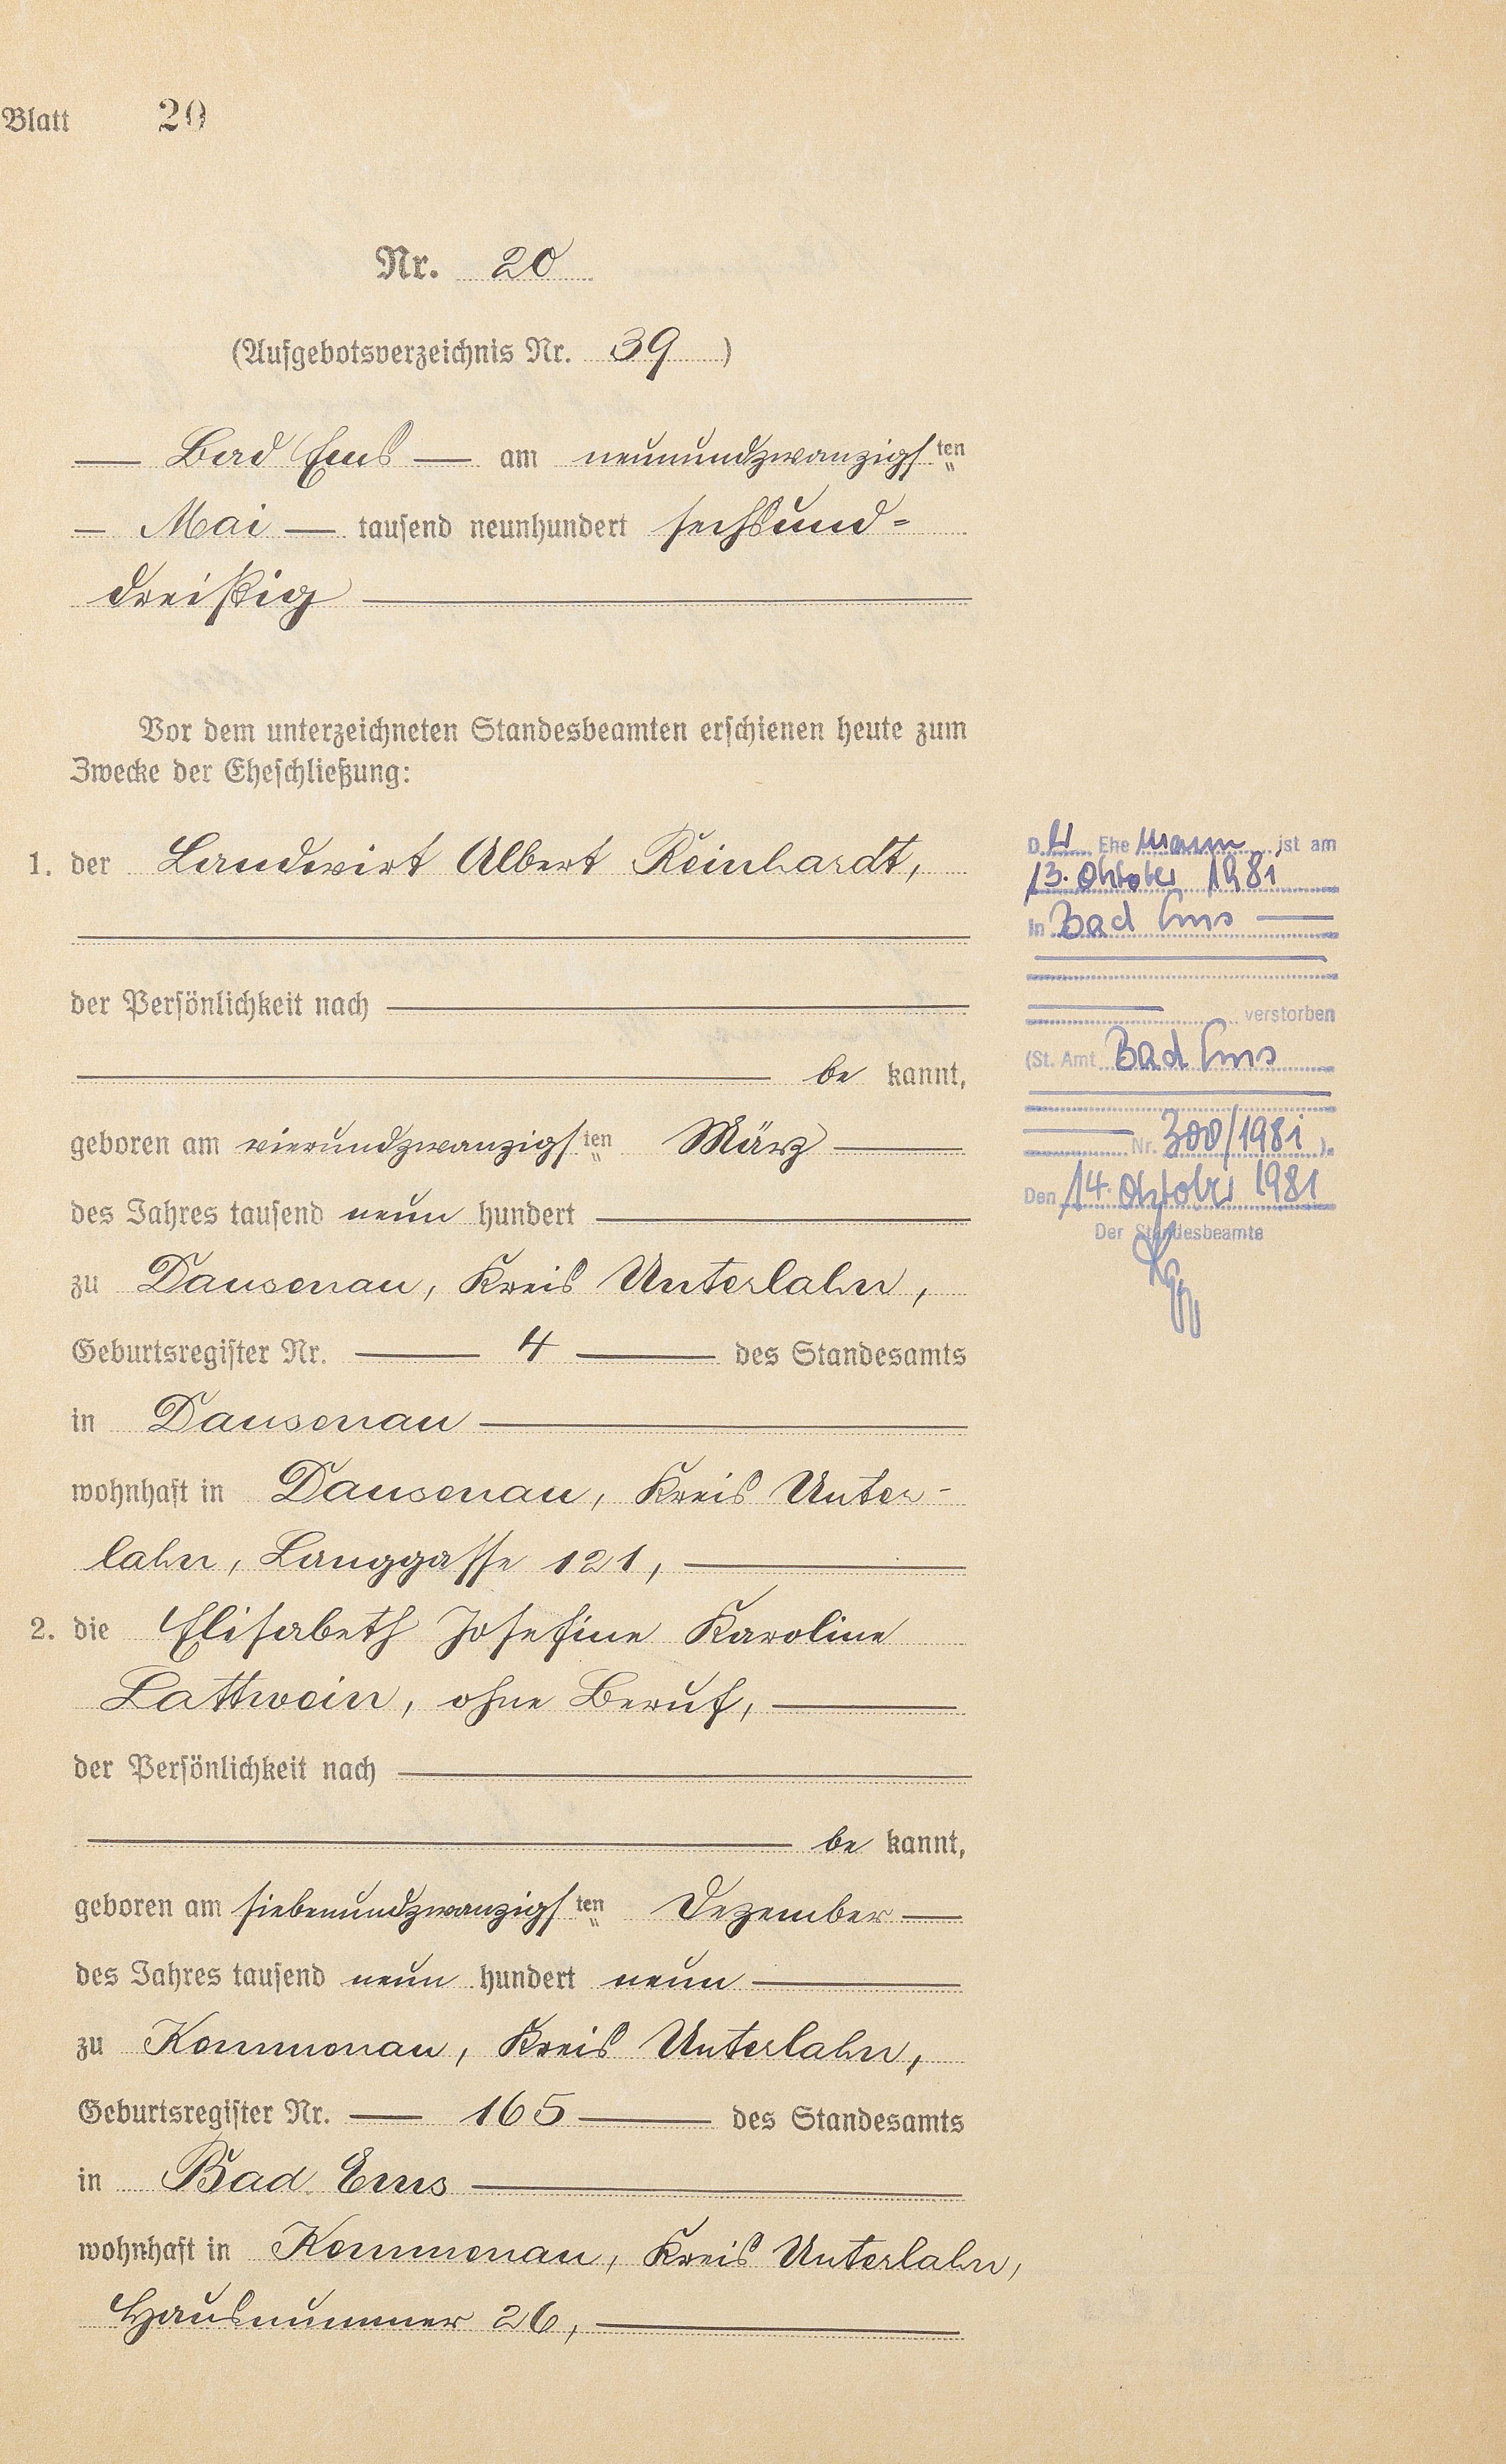 Blatt 20
Nr. 20
(Aufgebotsverzeichnis Nr. 39 )
— Bad Ems — am neunundzwanzigsten
— Mai — tausend neunhundert sechsund-
dreißig
Vor dem unterzeichneten Standesbeamten erschienen heute zum
Zwecke der Eheschließung:
1. der Landwirt Albert Reinhardt,
der Persönlichkeit nach
be kannt,
geboren am vierundzwanzigsten März
des Jahres tausend neun hundert
zu Dausenau, Kreis Unterlahn,
Geburtsregister Nr. 4 des Standesamts
in Dausenau
wohnhaft in Dausenau, Kreis Unter-
lahn, Langgasse 121,
2. die Elisabeth Josefine Karoline
Lattwein, ohne Beruf,
der Persönlichkeit nach
be kannt,
geboren am siebenundzwanzigsten Dezember
des Jahres tausend neun hundert neun
zu Kemmenau, Kreis Unterlahn,
Geburtsregister Nr. 165 des Standesamts
in Bad Ems
wohnhaft in Kemmenau, Kreis Unterlahn,
Hausnummer 26,
D.er Ehe mann ist am
13. Oktober 1981
in Bad Ems
verstorben
(St. Amt Bad Ems
Nr. 300/1981 ).
Den 14. Oktober 1981
Der Standesbeamte